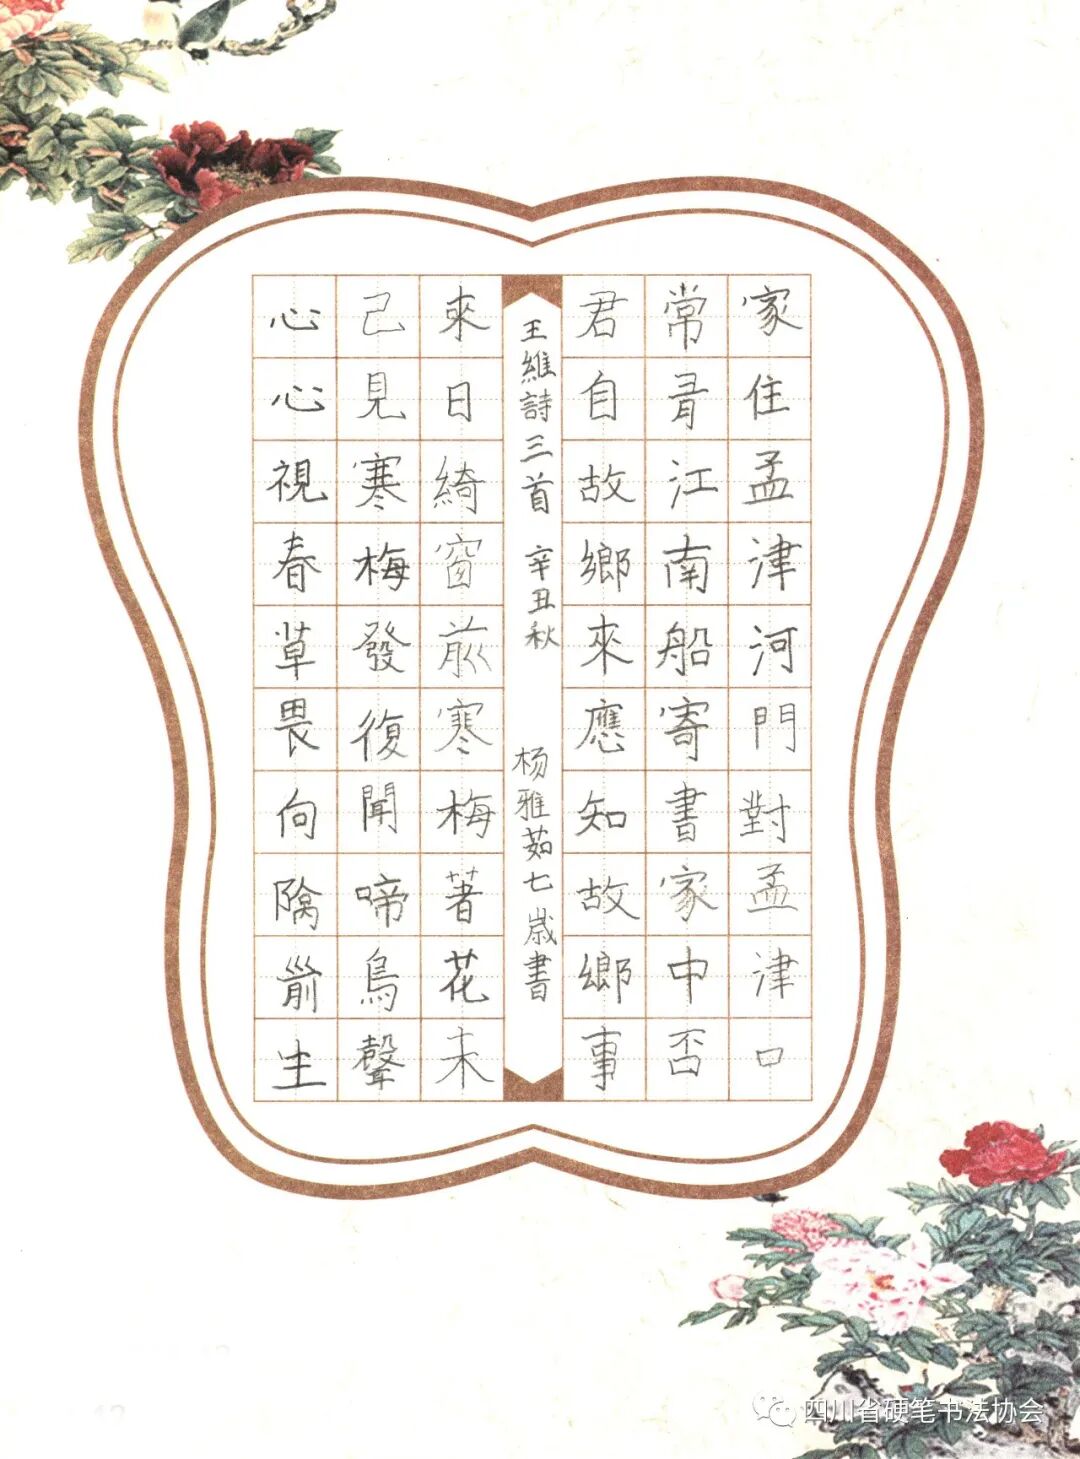 家住孟津河門對孟津口
常有江南船寄書家中否
君自故鄉來應知故鄉事
王維詩三首 辛丑秋 杨雅茹七歲書
來日綺窗前寒梅著花未
己見寒梅發復聞啼鳥聲
心心視春草畏向前生
四川省硬笔书法协会